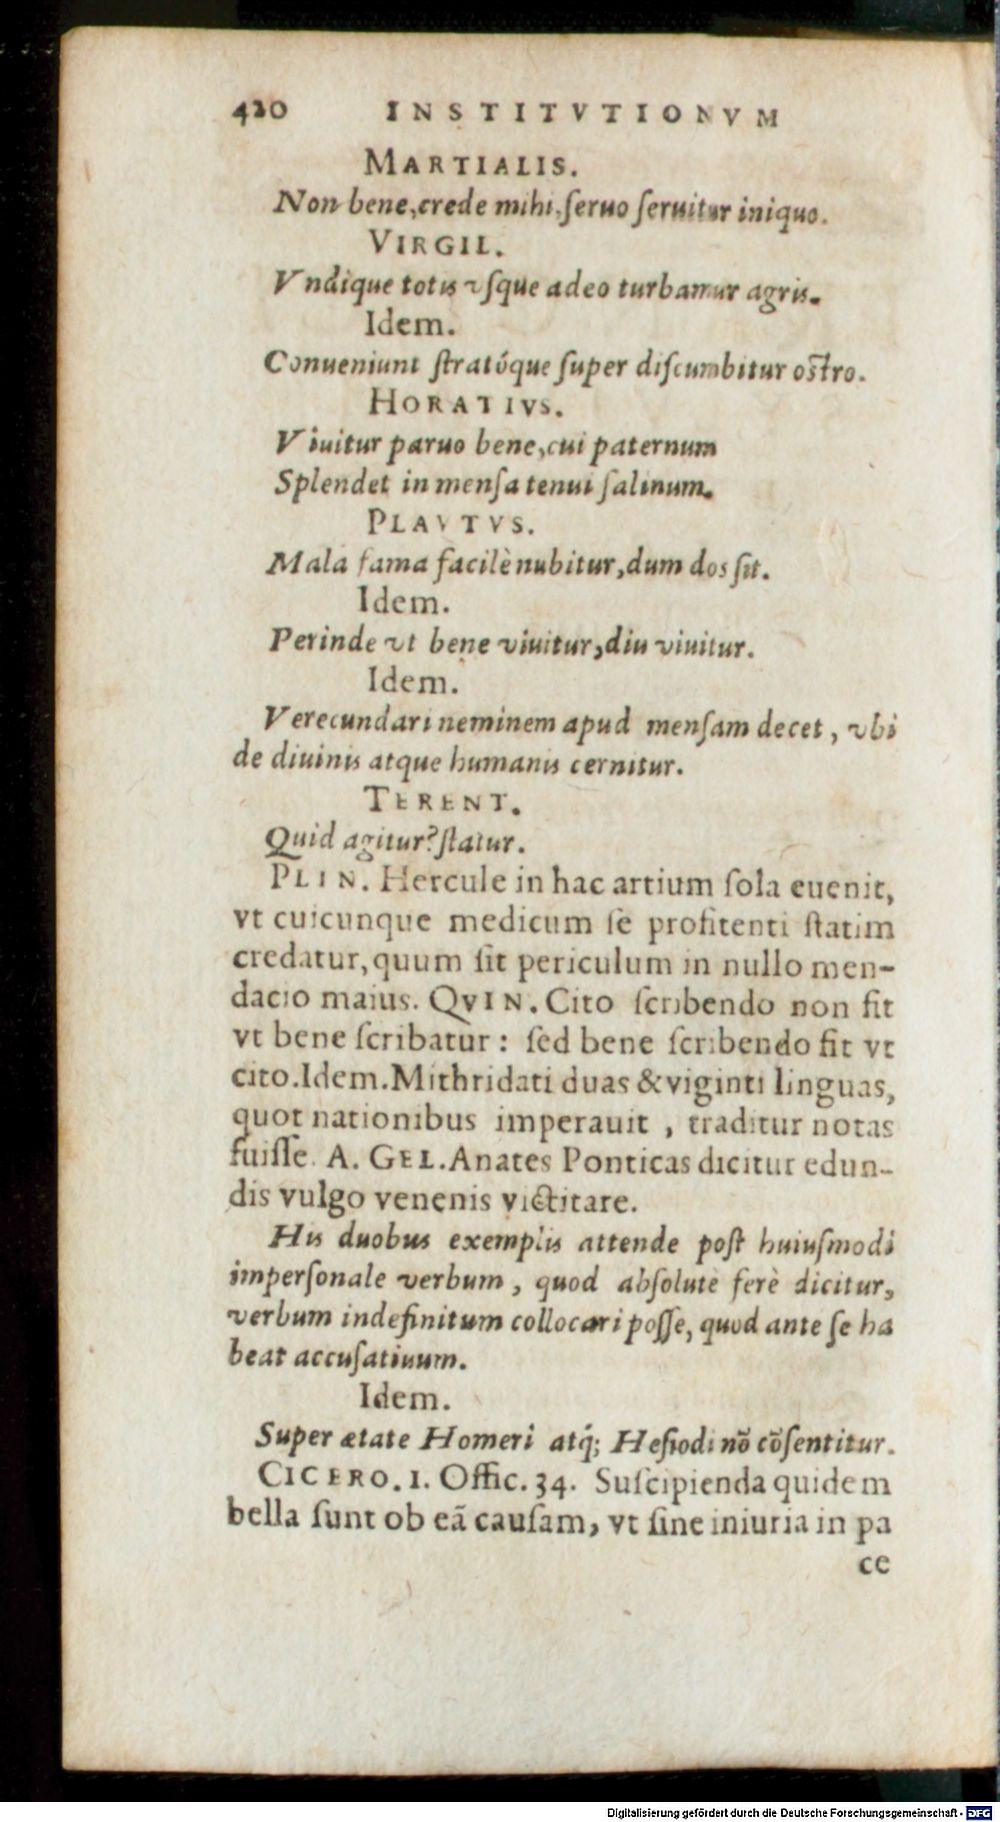 420 INSTITVTIONVM
MARTIALIS.
Non bene, crede mihi, ſeruo ſeruitur iniquo.
VIRGIL.
Vndique totis vſque adeo turbamur agris.
Idem.
Conueniunt ſtratóque ſuper diſcumbitur oſtro.
HORATIVS.
Viuitur paruo bene, cui paternum
Splendet in menſa tenui ſalinum.
PLAVTVS.
Mala fama facilè nubitur, dum dos ſit.
Idem.
Perinde vt bene viuitur, diu viuitur.
Idem.
Verecundari neminem apud menſam decet, vbi
de diuinis atque humanis cernitur.
TERENT.
Quid agitur? ſtatur.
PLIN. Hercule in hac artium ſola euenit,
vt cuicunque medicum ſe profitenti ſtatim
credatur, quum ſit periculum in nullo men-
dacio maius. QVIN. Cito ſcribendo non fit
vt bene ſcribatur: ſed bene ſcribendo fit vt
cito. Idem. Mithridati duas & viginti linguas,
quot nationibus imperauit, traditur notas
fuiſſe. A. GEL. Anates Ponticas dicitur edun-
dis vulgo venenis victitare.
His duobus exemplis attende poſt huiuſmodi
imperſonale verbum, quod abſolute ferè dicitur,
verbum indefinitum collocari poſſe, quod ante ſe ha
beat accuſatiuum.
Idem.
Super ætate Homeri atq́; Heſiodi nō cōſentitur.
CICERO. 1. Offic. 34. Suſcipienda quidem
bella ſunt ob eā cauſam, vt ſine iniuria in pa
ce
Digitalisierung gefördert durch die Deutsche Forschungsgemeinschaft - DFG